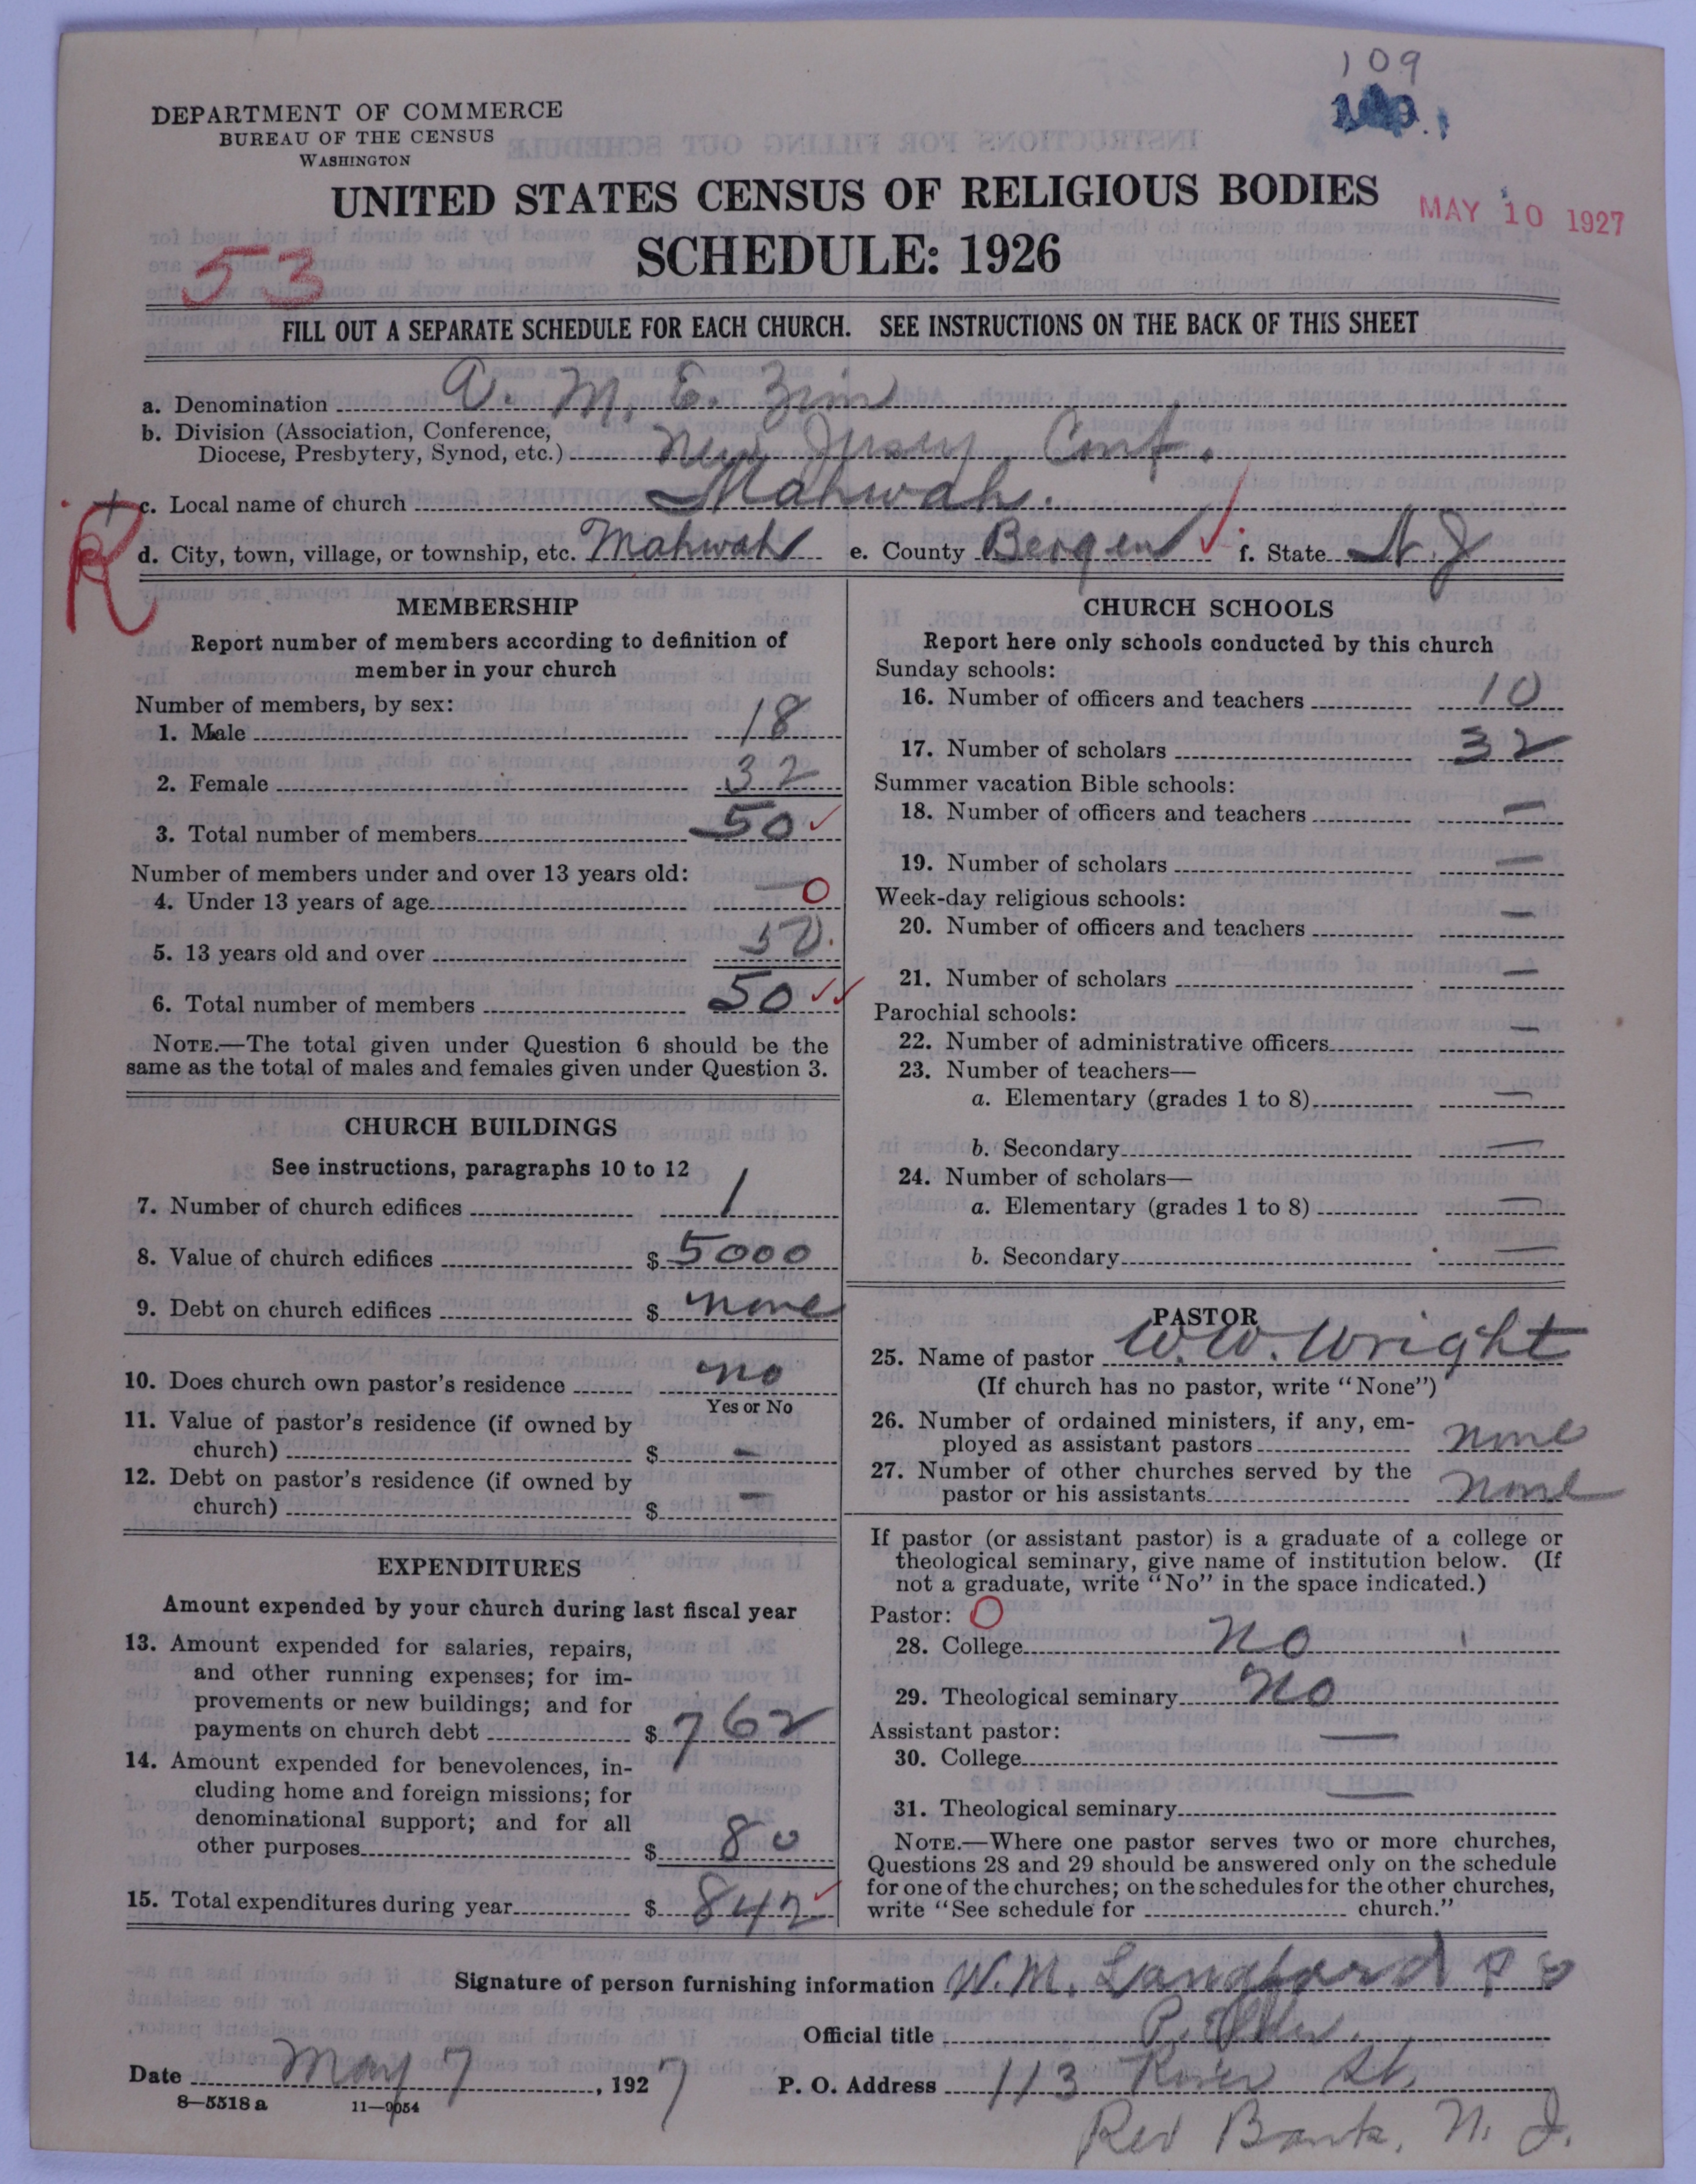 109
DEPARTMENT OF COMMERCE
BUREAU OF THE CENSUS
WASHINGTON
UNITED STATES CENSUS OF RELIGIOUS BODIES
MAY 10 1927
SCHEDULE: 1926
53
FILL OUT A SEPARATE SCHEDULE FOR EACH CHURCH. SEE INSTRUCTIONS ON THE BACK OF THIS SHEET
a. Denomination A. M. E. Zion
b. Division (Association, Conference,
Diocese, Presbytery, Synod, etc.) New Jersey Conf.
c. Local name of church Mahwah.
R
d. City, town, village, or township, etc. Mahwah e. County Bergen ✓ f. State N. J
MEMBERSHIP
Report number of members according to definition of
member in your church
Number of members, by sex:
1. Male 18
2. Female 32
3. Total number of members 50 ✓
Number of members under and over 13 years old:
4. Under 13 years of age — 0
5. 13 years old and over 50.
6. Total number of members 50 ✓✓
NOTE.—The total given under Question 6 should be the
same as the total of males and females given under Question 3.
CHURCH BUILDINGS
See instructions, paragraphs 10 to 12
7. Number of church edifices 1
8. Value of church edifices $ 5000
9. Debt on church edifices $ none
10. Does church own pastor's residence no
Yes or No
11. Value of pastor's residence (if owned by
church) $ —
12. Debt on pastor's residence (if owned by
church) $ —
EXPENDITURES
Amount expended by your church during last fiscal year
13. Amount expended for salaries, repairs,
and other running expenses; for im-
provements or new buildings; and for
payments on church debt $ 762
14. Amount expended for benevolences, in-
cluding home and foreign missions; for
denominational support; and for all
other purposes $ 80
15. Total expenditures during year $ 842 ✓
CHURCH SCHOOLS
Report here only schools conducted by this church
Sunday schools:
16. Number of officers and teachers 10
17. Number of scholars 32
Summer vacation Bible schools:
18. Number of officers and teachers —
19. Number of scholars —
Week-day religious schools:
20. Number of officers and teachers —
21. Number of scholars —
Parochial schools:
22. Number of administrative officers —
23. Number of teachers—
a. Elementary (grades 1 to 8) —
b. Secondary —
24. Number of scholars—
a. Elementary (grades 1 to 8) —
b. Secondary —
PASTOR
25. Name of pastor W. W. Wright
(If church has no pastor, write "None")
26. Number of ordained ministers, if any, em-
ployed as assistant pastors none
27. Number of other churches served by the
pastor or his assistants none
If pastor (or assistant pastor) is a graduate of a college or
theological seminary, give name of institution below. (If
not a graduate, write "No" in the space indicated.)
Pastor: O
28. College no
29. Theological seminary no
Assistant pastor:
30. College —
31. Theological seminary —
NOTE.—Where one pastor serves two or more churches,
Questions 28 and 29 should be answered only on the schedule
for one of the churches; on the schedules for the other churches,
write "See schedule for church."
Signature of person furnishing information W. M. Langford
Official title P. Elder.
Date May 7, 1927 P. O. Address 113 River St.
8—5518 a 11—9054
Red Bank, N. J.